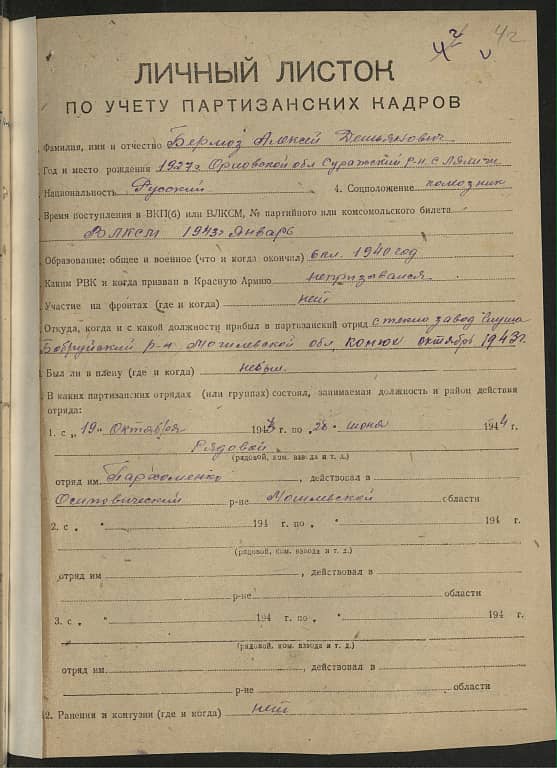 42
ЛИЧНЫЙ ЛИСТОК
ПО УЧЕТУ ПАРТИЗАНСКИХ КАДРОВ
Фамилия, имя и отчество Бермоз Алексей Демьянович
Год и место рождения 1927г Орловской обл Суражский р-н. с Лялич
Национальность Русский 4. Соцположение
Время поступления в ВКП(б) или ВЛКСМ, № партийного или комсомольского билета
ВЛКСМ 1943г Январь
Образование: общее и военное (что и когда окончил) 6 кл. 1940 год
Каким РВК и когда призван в Красную Армию непризовался
Участие на фронтах (где и когда) нет
Откуда, когда и с какой должности прибыл в партизанский отряд стекло завод
Бобруйский р-н Могилевской обл конюх октябрь 1943г.
Был ли в плену (где и когда) небыл.
В каких партизанских отрядах (или группах) состоял, занимаемая должность и район действия
отряда:
1. с „19" октября 1943 г. по „26" июня 1944 г.
Рядовой
(рядовой, ком. взвода и т. д.)
отряд им Пархоменко, действовал в
Осиповический р-не Могилевской области
2. с „ " 194 г. по „ " 194 г.
(рядовой, ком. взвода и т. д.)
отряд им , действовал в
р-не области
3. с „ " 194 г. по „ " 194 г.
(рядовой, ком. взвода и т. д.)
отряд им , действовал в
р-не области
2. Ранения и контузии (где и когда) нет